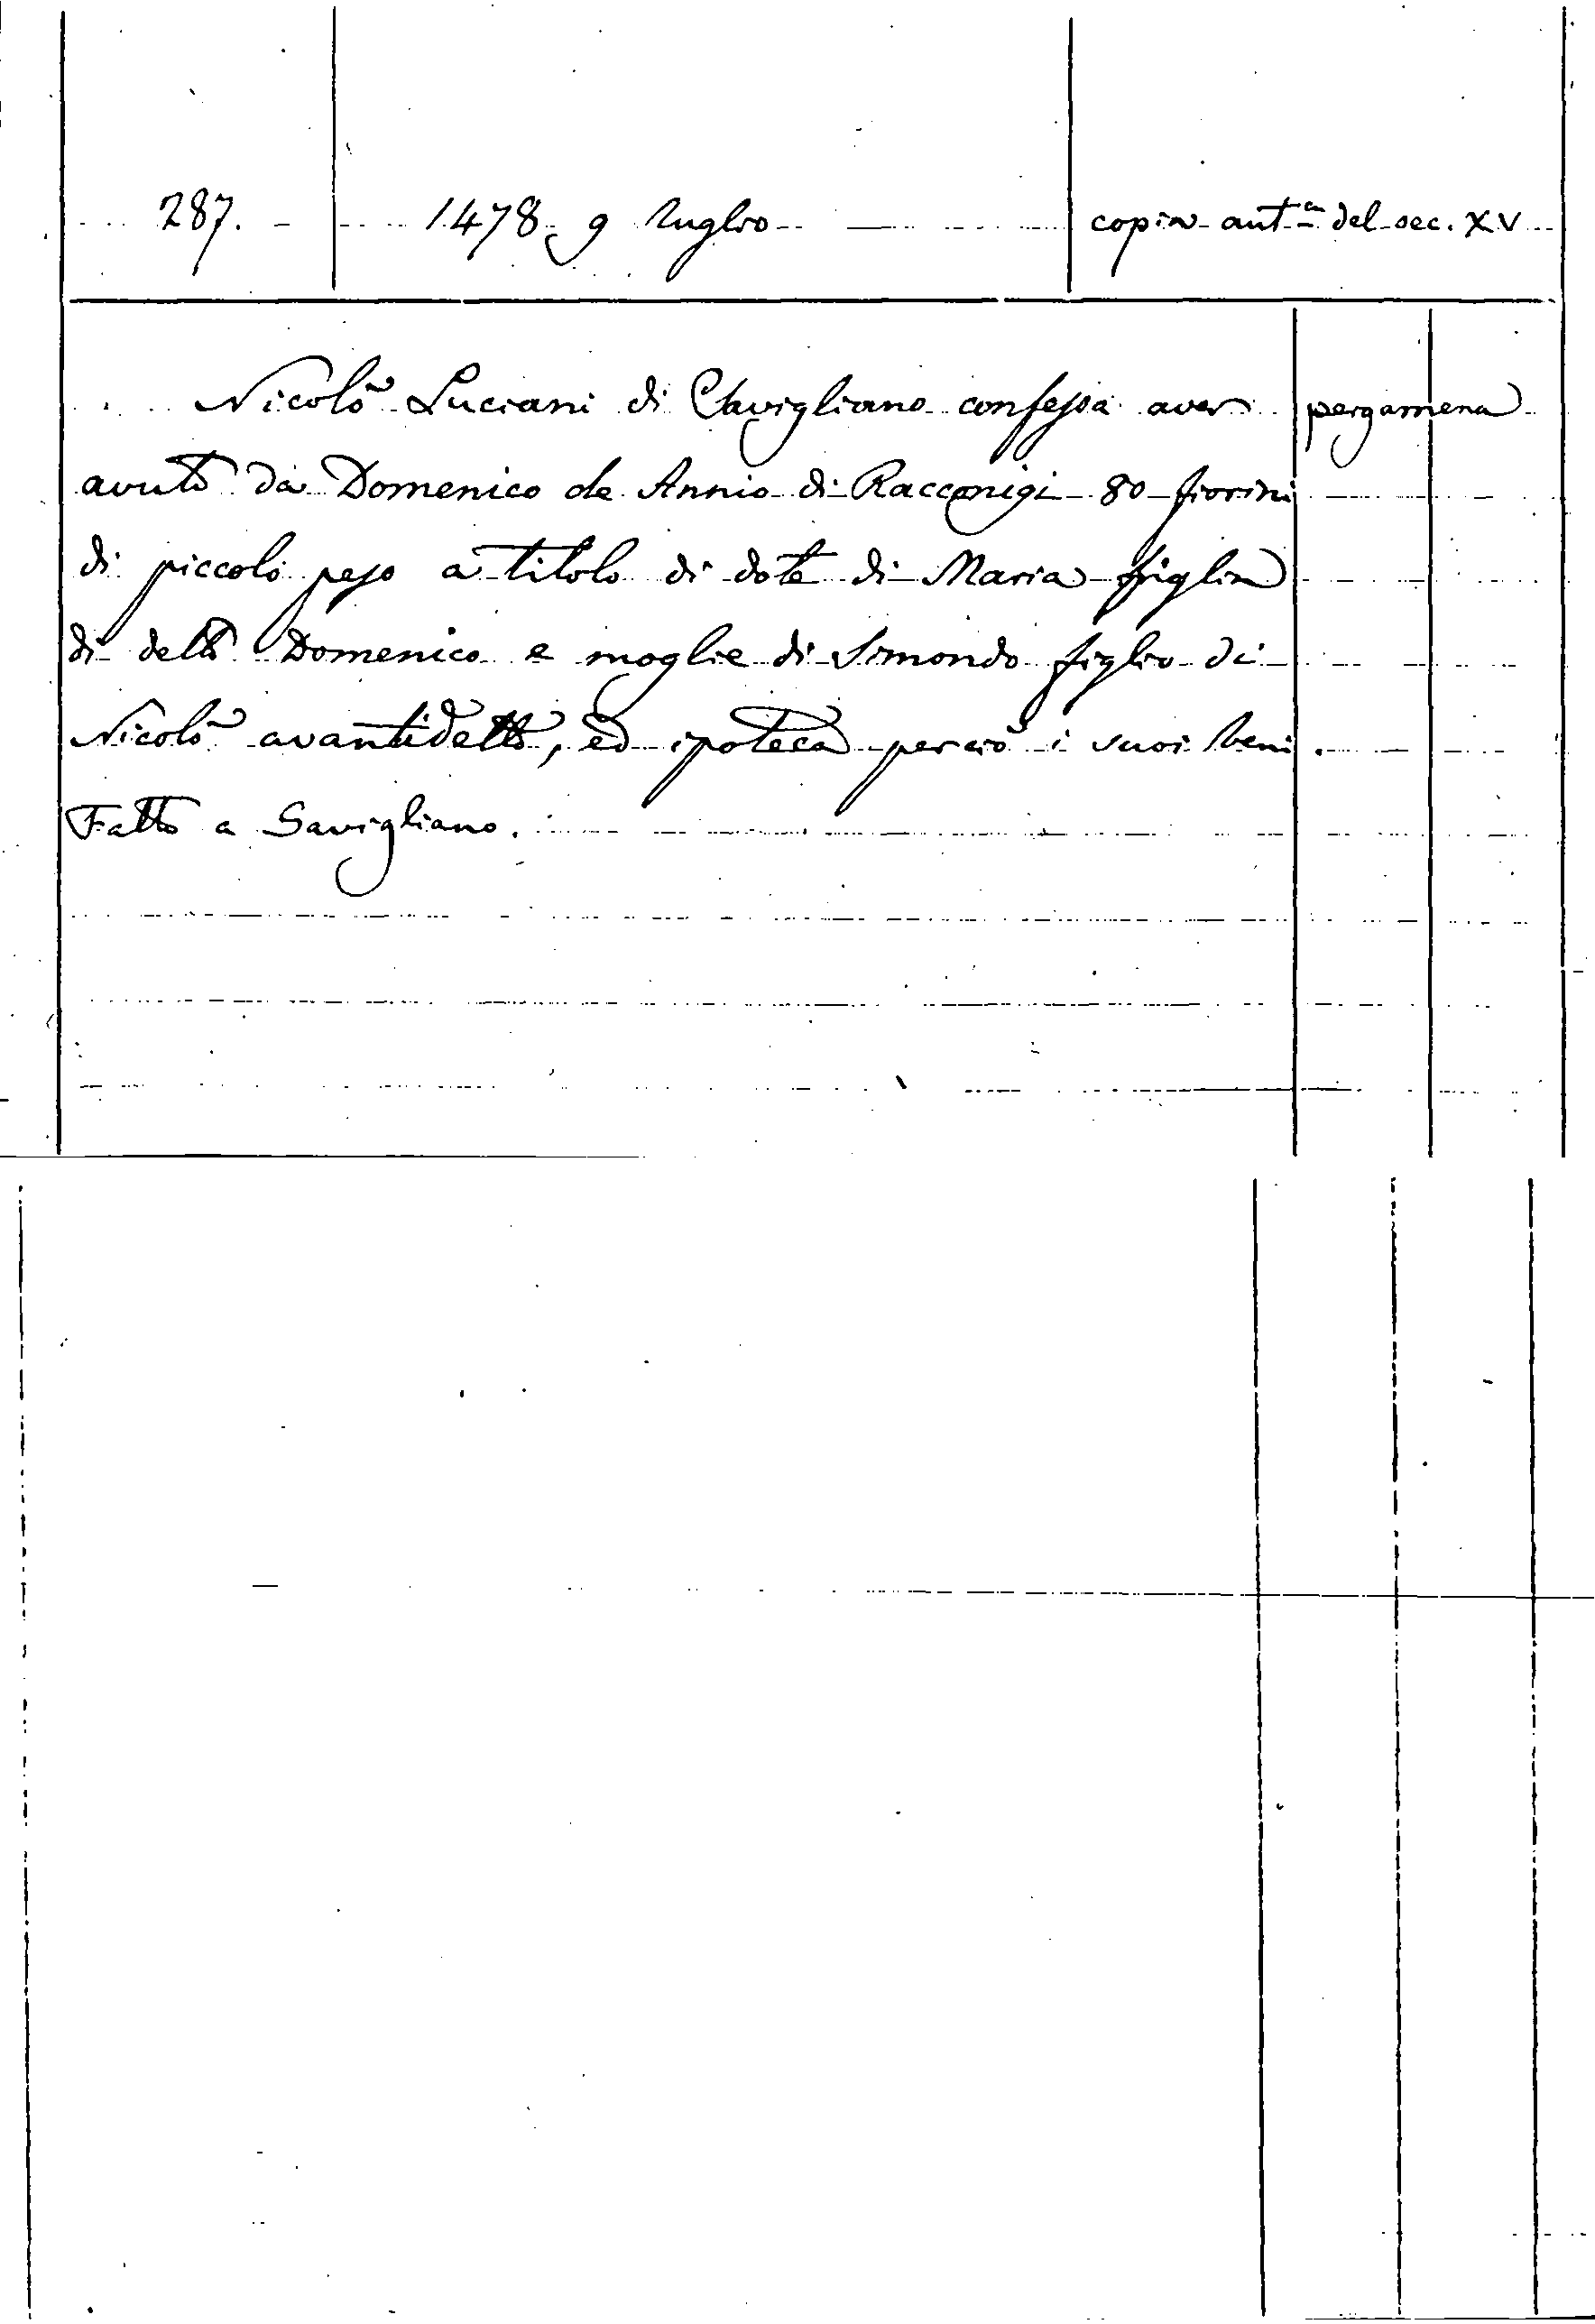 287. 1478 9 luglio copia ant.ca del sec. XV
Nicolò Luciani di Savigliano confessa aver pergamena
avuto da Domenico de Annio di Racconigi 80 fiorini
di piccolo peso a titolo di dote di Maria figlia
di detto Domenico e moglie di Simondo figlio di
Nicolò avantidetto, ed ipoteca perciò i suoi beni.
Fatto a Savigliano.